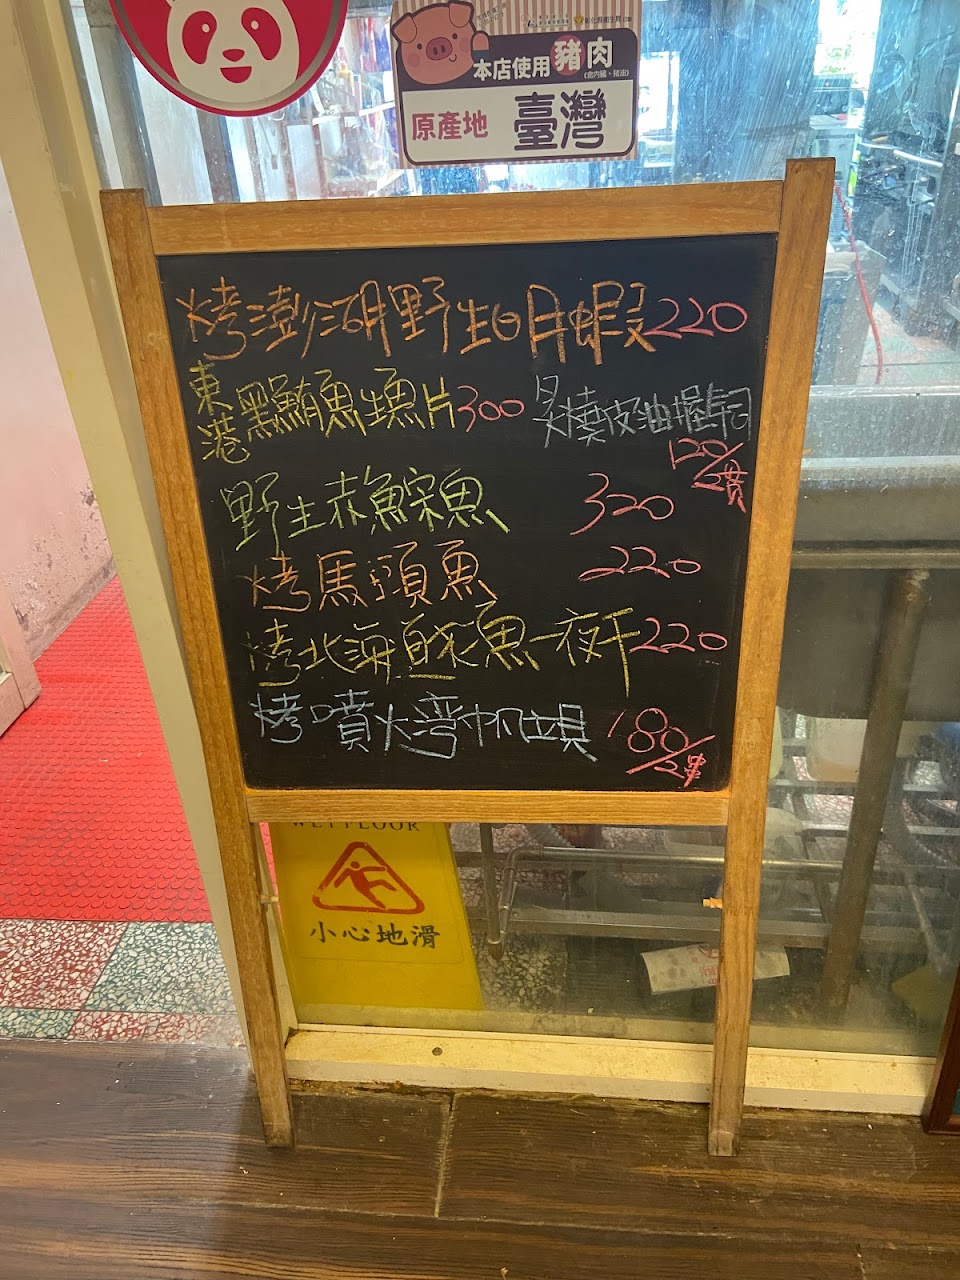 本店使用豬肉
(含內臟、豬油)
原產地 臺灣
烤澎湖野生明蝦220
東港黑鮪魚生魚片300
炙燒皮油握壽司
120/2貫
野生赤鯮魚 320
烤馬頭魚 220
烤北海魚一夜干220
烤噴火灣帆立貝 180/2串
WET FLOOR
小心地滑